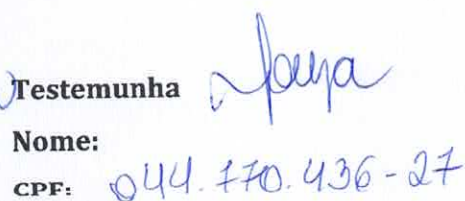 Testemunha
Nome:
CPF: 044.770.436-27